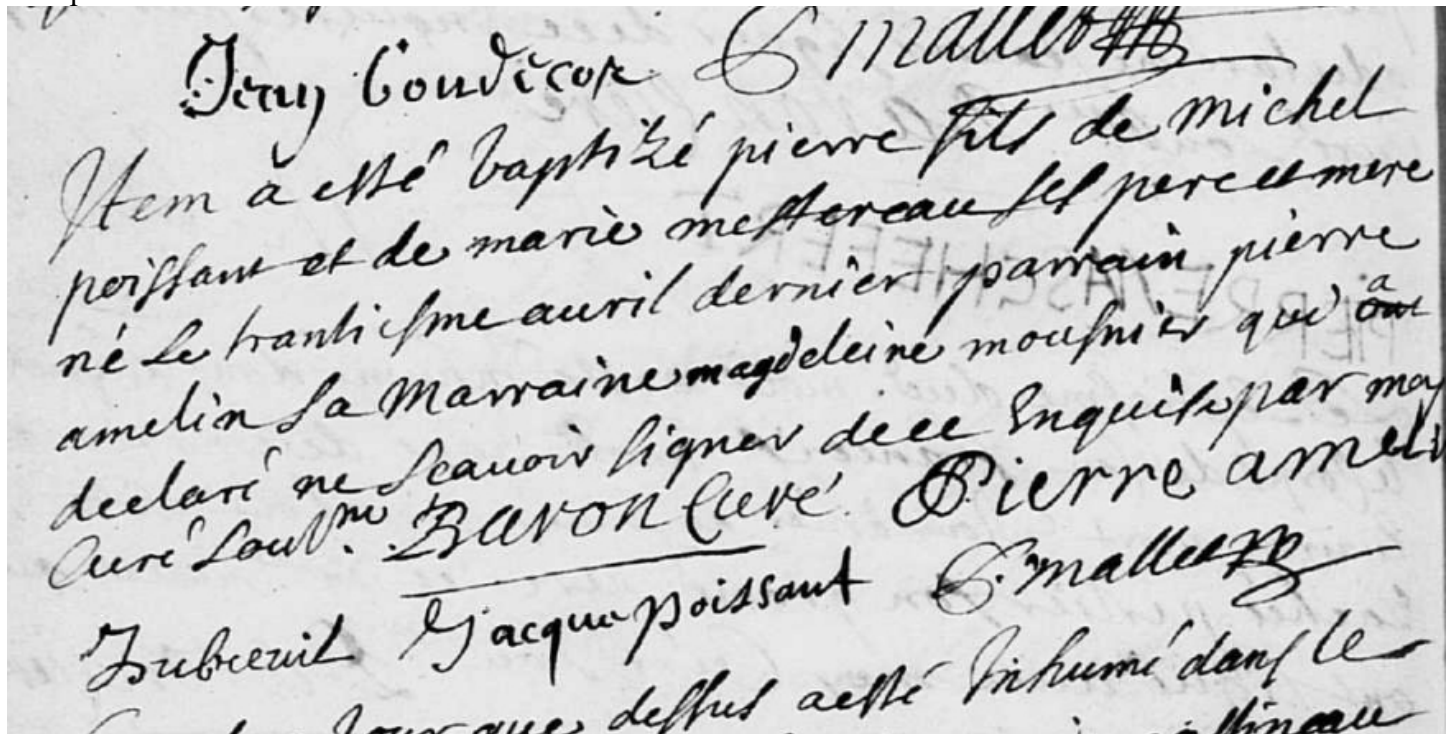 Jean Coudècor P mallet
Item à esté baptizé pierre fils de michel
poissant et de marie mestereau ses pere et mere
né le trantiesme auril dernier parrain pierre
amelin la Marraine magdeleine mousnier qui a
declaré ne scauoir signer de ce Enquise par moy
Curé Soub.ne Baron Curé Pierre ameli
Dubreuil Jacque poissant P. mallet
Jour que dessus a esté Inhumé dans le